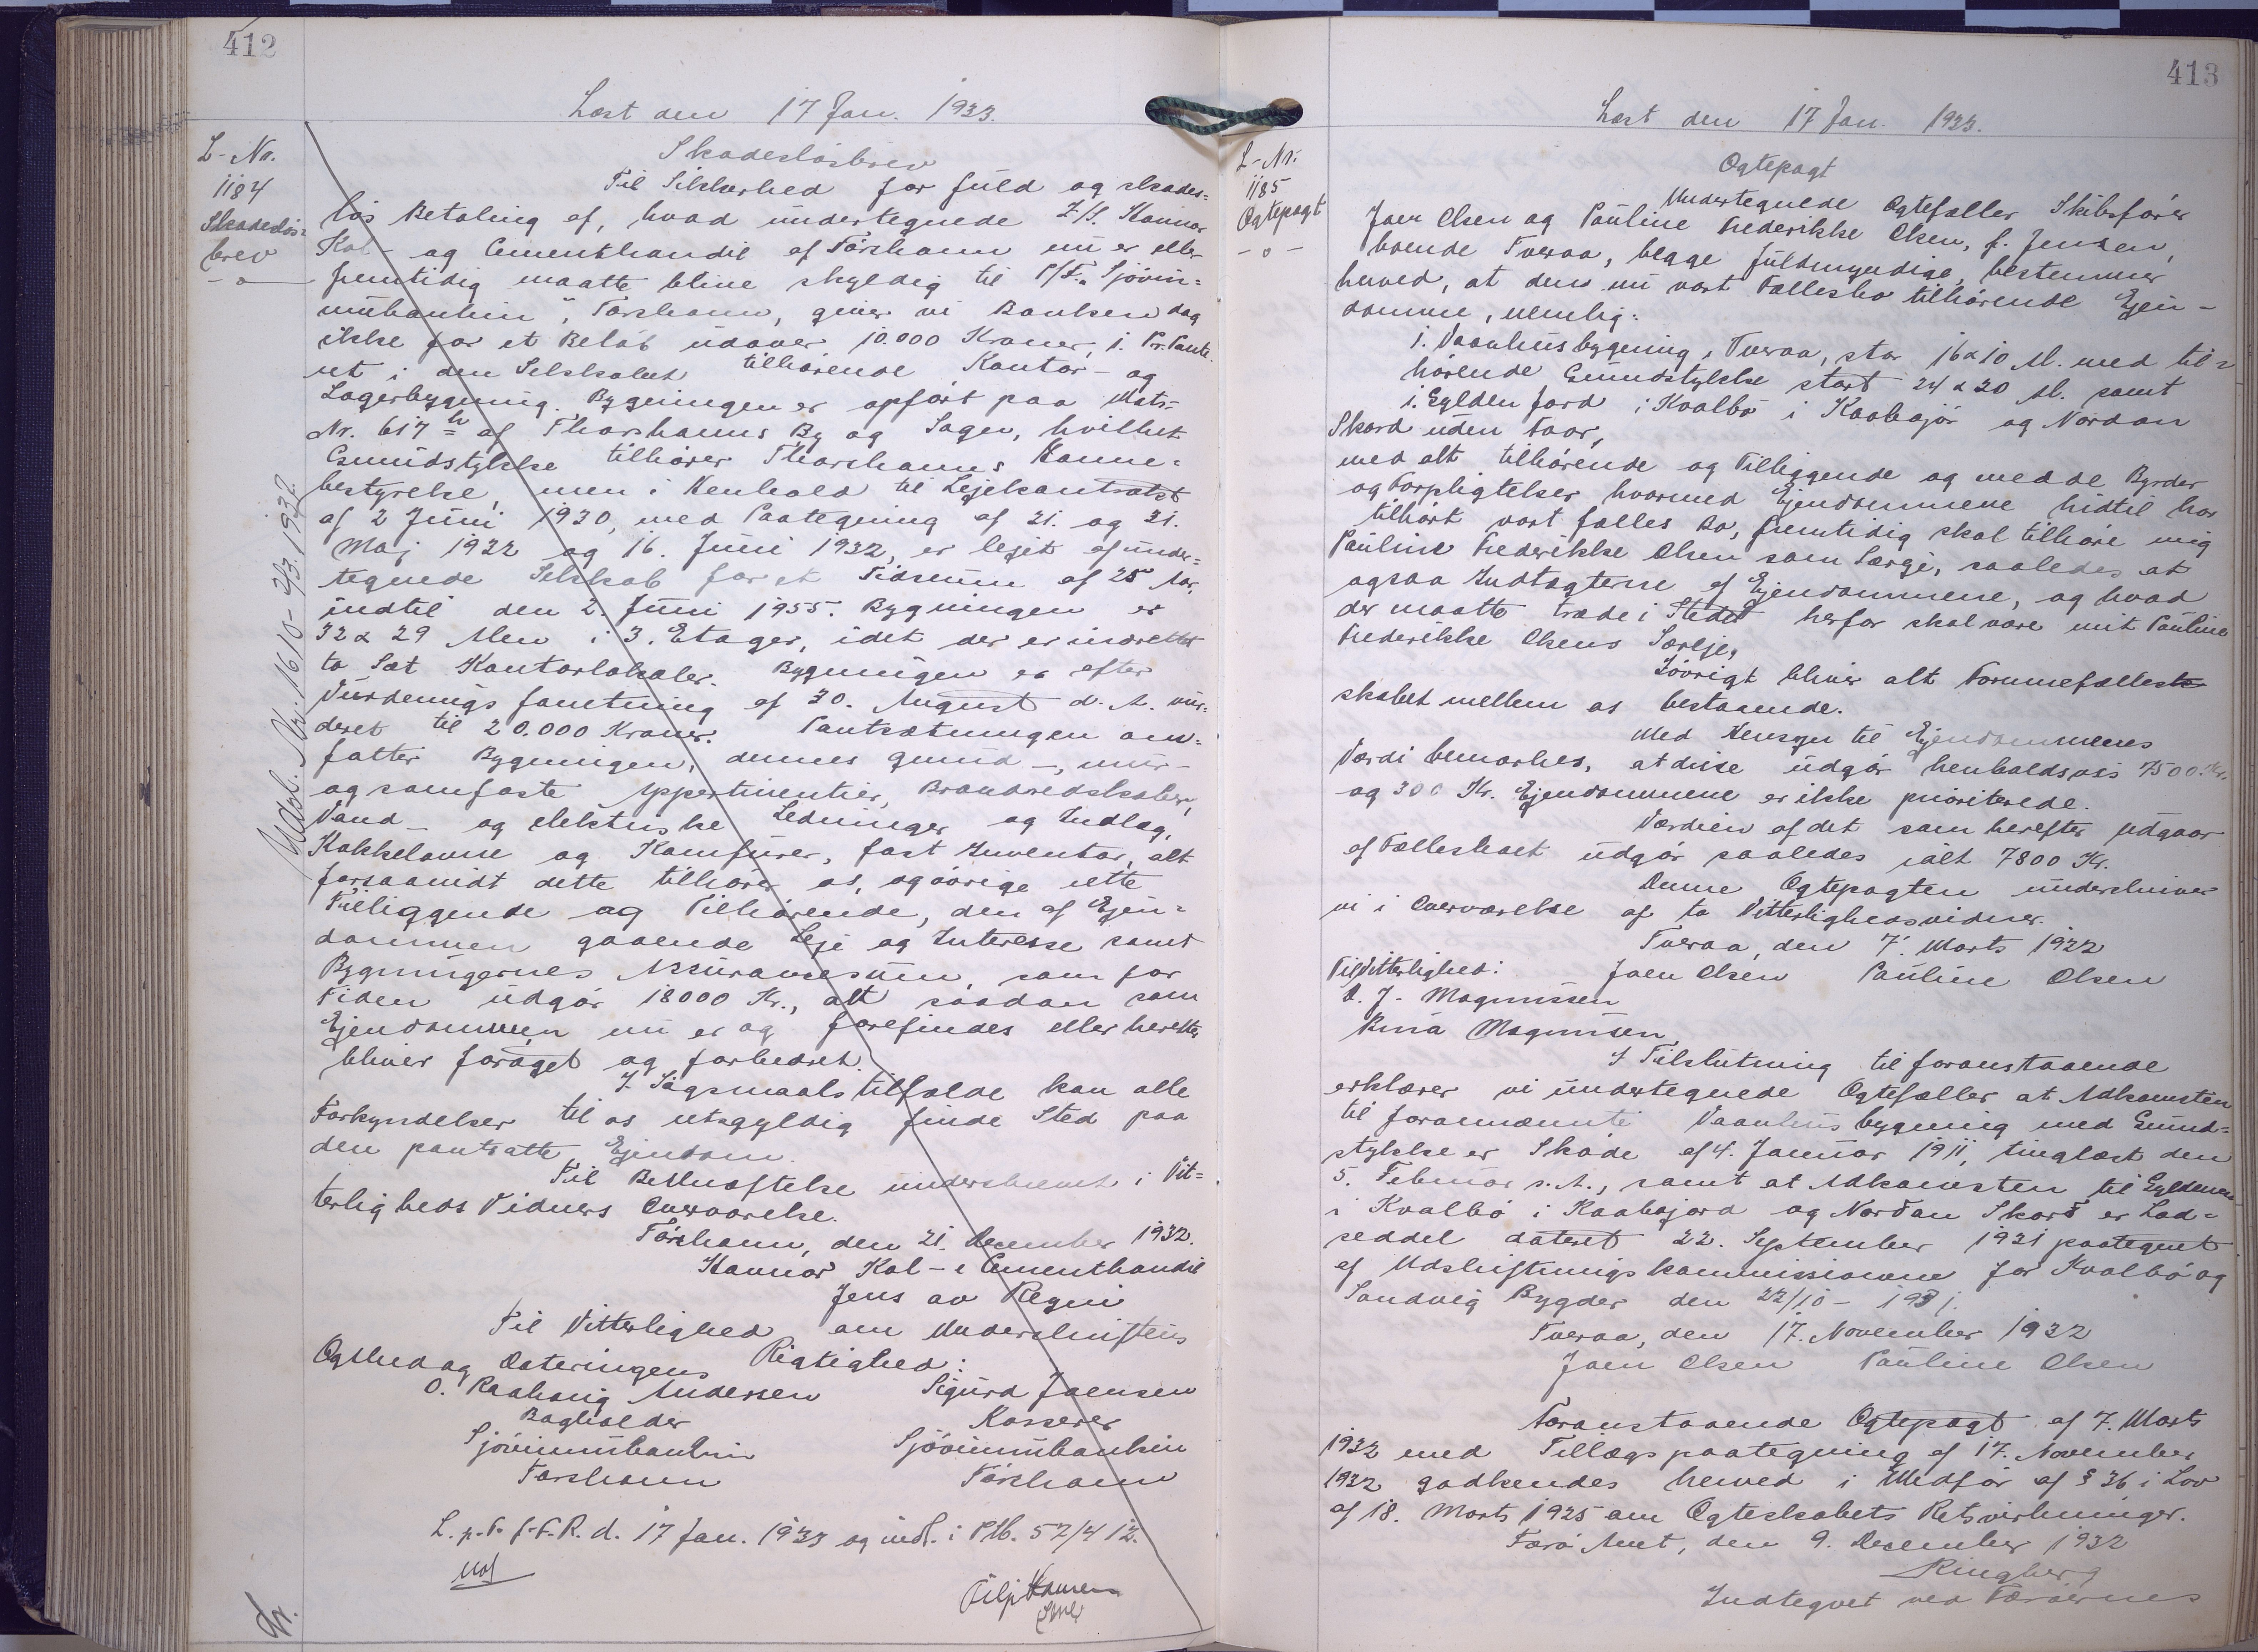 412
Læst den 17 Jan. 1933.
L-Nr.
1184
Skadeslös=
brev
-o-
Skadeslösbrev
Til Sikkerhed for fuld og skades=
lös Betaling af, hvad undertegnede I/S. Hannar
Kol- og Cementhandil af Tórshavn nu er eller
fremtidig maatte blive skyldig til P/F. „Sjóvin=
nubankin", Tórshavn, giver vi Banken dog
ikke for et Belöb udover 10.000 Kroner, 1. Pr. Pante
ret i den Selskabet tilhörende Kontor- og
Lagerbygning. Bygningen er opfört paa Matr=
Nr. 617 h af Thorshavns By og Sogn, hvilket
Grundstykke tilhörer Thorshavns Havne=
bestyrelse, men i Henhold til Lejekontrakt
af 2 Juni 1930, med Paategning af 21. og 31.
Maj 1932 og 16. Juni 1932, er lejet af under=
tegnede Selskab for et Tidsrum af 25 Aar,
indtil den 2. Juni 1955. Bygningen er
32 x 29 Alen i 3. Etager, idet der er indrettet
to Sæt Kontorlokaler. Bygningen er efter
Vurderingsforretning af 30. August d. A. vur=
deret til 20.000 Kroner. Pantsætningen om=
fatter Bygningen, dennes grund-, mur-
og sömfaste Appertinentier, Brandredskaber,
Vand- og elektriske Ledninger og Indlæg,
Kakkelovne og Komfurer, fast Inventar, alt
forsaavidt dette tilhörer os, og övrige rette
Tilliggende og Tilhörende, den af Ejen=
dommen gaaende Leje og Interesse samt
Bygningernes Assurancesum, som for
Tiden udgör 18000 Kr., alt saadan som
Ejendommen nu er og forefindes eller herefter
bliver foröget og forbedret.
I Sögsmaalstilfælde kan alle
Forkyndelser til os retsgyldig finde Sted paa
den pantsatte Ejendom.
Til Bekræftelse underskrevet i Vit=
terligheds Vidners Overværelse.
Tórshavn, den 21. December 1932.
Hannar Kol- & Cementhandil
Jens av Reyni
Til Vitterlighed om Underskriftens
Ægthed og Dateringens Rigtighed:
O. Andersen Sigurd Joensen
Bogholder Kasserer
Sjóvinnubankin Sjóvinnubankin
Tórshavn Tórshavn
L. p. F. f. F. R. d. 17 Jan. 1933 og indf. i P.M. 52/412.
Udsl. Nr. 16/0 - 2/3. 1932.
413
Læst den 17 Jan. 1933.
L-Nr:
1185
Ögtepagt
-o-
Ögtepagt
Undertegnede Ögtefæller Skibsförer
Joen Olsen og Pauline Frederikke Olsen, f. Jensen,
boende Tveraa, begge fuldmyndige, bestemmer
herved, at dens nu vort Fællesbo tilhörende Ejen-
domme, nemlig:
1. Vaanhusbygning i Tveraa, stor 16 x 10 Al. med til=
hörende Grundstykke stort 24 x 20 Al. samt
1. Gylden Jord i Kvalbö i Kaabajör og Nordan
Skord uden Faar,
med alt tilhörende og Tilliggende og med de Byrder
og Forpligtelser hvormed Ejendommene hidtil har
tilhört vort fælles Bo, fremtidig skal tilhöre mig
Pauline Frederikke Olsen som Særeje, saaledes at
ogsaa Indtægterne af Ejendommene, og hvad
der maatte træde i Stedet herfor skal være mit Pauline
Frederikke Olsens Særeje,
Iövrigt bliver alt Formuefælles
skabet mellem os bestaaende.
Med Hensyn til Ejendommenes
Værdi bemærkes, at disse udgör henholdsvis 7500 Kr.
og 300 Kr. Ejendommene er ikke prioriterede.
Værdien af det som herefter udgaar
af Fællesboet udgör saaledes ialt 7800 Kr.
Denne Ögtepagten underskriver
vi i Overværelse af to Vitterlighedsvidner.
Tveraa, den 7. Marts 1932
Til Vitterlighed: Joen Olsen Pauline Olsen
D. J. Magnussen
Magnussen
I Tilslutning til foranstaaende
erklærer vi undertegnede Ögtefæller at Adkomsten
til forannævnte Vaanhusbygning med Grund=
stykke er Sköde af 4. Januar 1911, tinglæst den
5. Februar s. A., samt at Adkomsten til Gyldenen
i Kvalbö i Kaabajord og Nordan Skord er Lod=
seddel dateret 22. September 1931 paategnet
af Udskiftningskommissionen for Kvalbö og
Sandvig Bygder den 22/10 - 1931.
Tveraa, den 17. November 1932
Joen Olsen Pauline Olsen
Foranstaaende Ögtepagt af 7. Marts
1932 med Tillægspaategning af 17. November
1932 godkendes herved i Medför af § 36 i Lov
af 18. Marts 1925 om Ögteskabets Retsvirkninger.
Færö Amt, den 9. December 1932
Ringberg
Indtegnet ved Færöernes